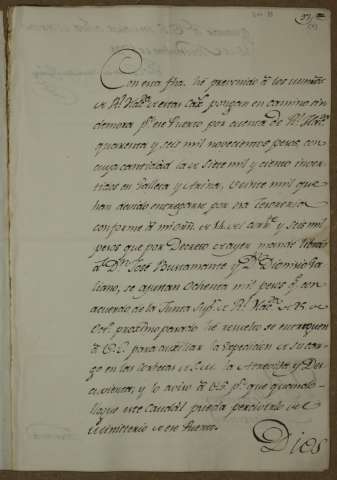 Con esta fha. he prevenido á los minros.
de Rl. Hazda. y Rentas Caxs. pongan en camino sin
demora pa. ese Puerto por cuenta de Rl. Hazda.
quarenta y seis mil novecientos pesos con
cuya cantidad la de siete mil y ciento inver-
tidos en Galleta y Arina, veinte mil que
han devido entregarse por esa Tesoreria
conforme á mi orn. de 14. del corrte. y seis mil
pesos que por Decreto de ayer mandé librar
á Dn. José Bustamante y Dn. Dionisio Ga-
liano, se ajustan ochenta mil pesos qe. con
acuerdo de la Junta Supr. de Rl. Hazda. de 15 de
Octe. proximo pasado he resuelto se entreguen
á V.S. para auxiliar la expedicion de su car-
go en las Corbetas de S.M. la Atrevida y Des-
cuvierta, y lo aviso á V.S. pa. que quando
llegue este Caudal pueda percivirlo del
Ministerio de ese Puerto.
Dios